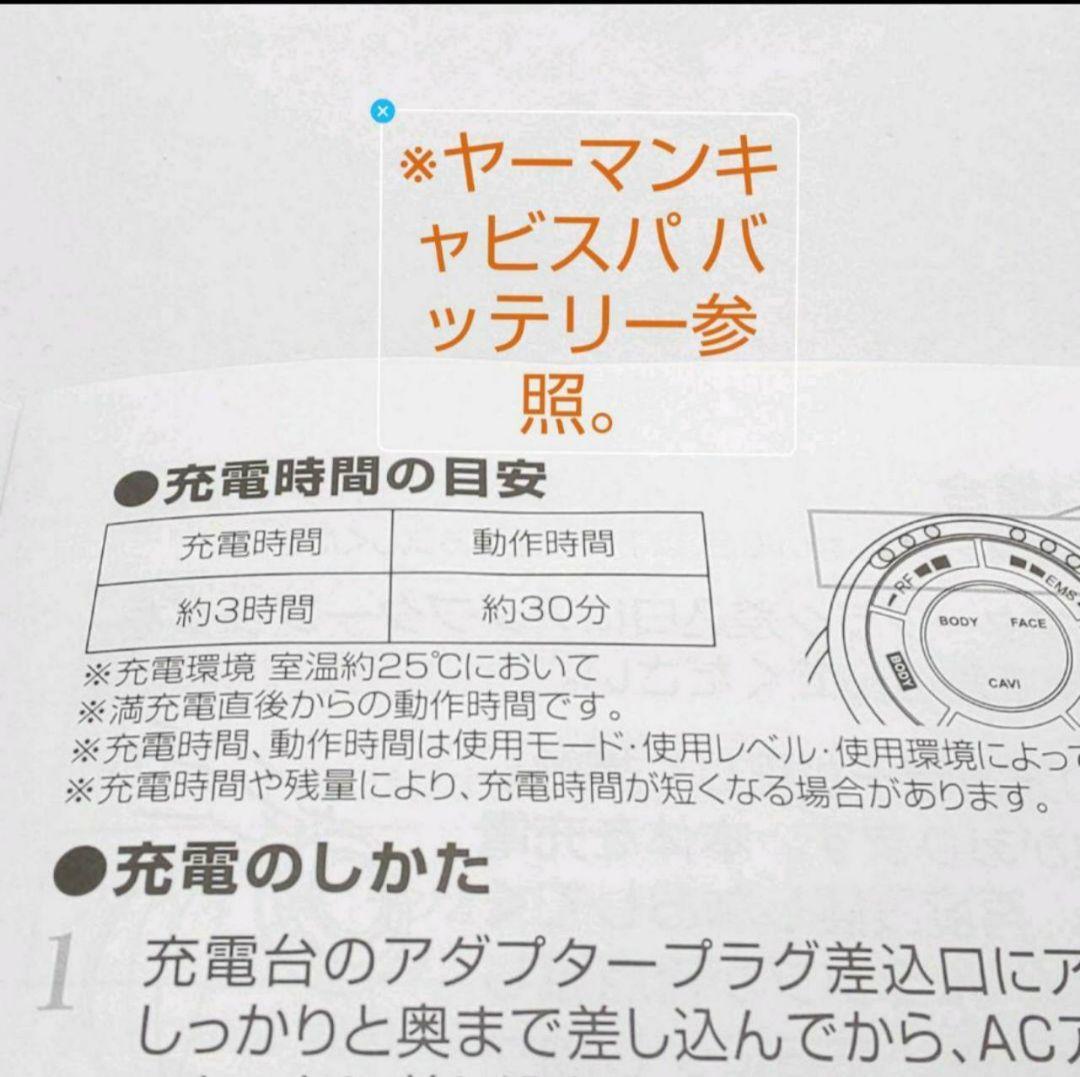 ※ヤーマンキ
ャビスパ バ
ッテリー参
照。
●充電時間の目安
充電時間 動作時間
約3時間 約30分
※充電環境 室温約25℃において
※満充電直後からの動作時間です。
※充電時間、動作時間は使用モード・使用レベル・使用環境によって
※充電時間や残量により、充電時間が短くなる場合があります。
RF
EMS
BODY FACE
BODY
CAVI
●充電のしかた
1 充電台のアダプタープラグ差込口にア
しっかりと奥まで差し込んでから、ACア